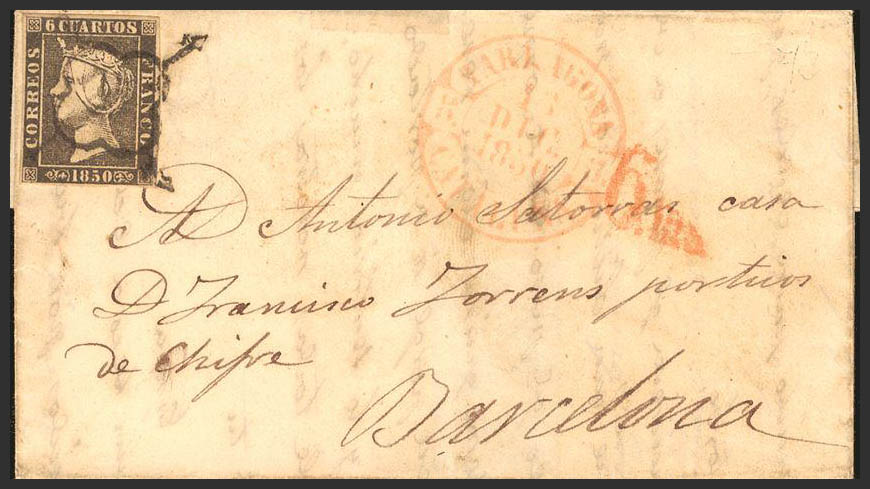 6 CUARTOS
CORREOS
FRANCO
1850
TARRAGONA
DIC
1850
6
A D Antonio Satorras casa
D Francisco Torrens porticos
de Chifre
Barcelona